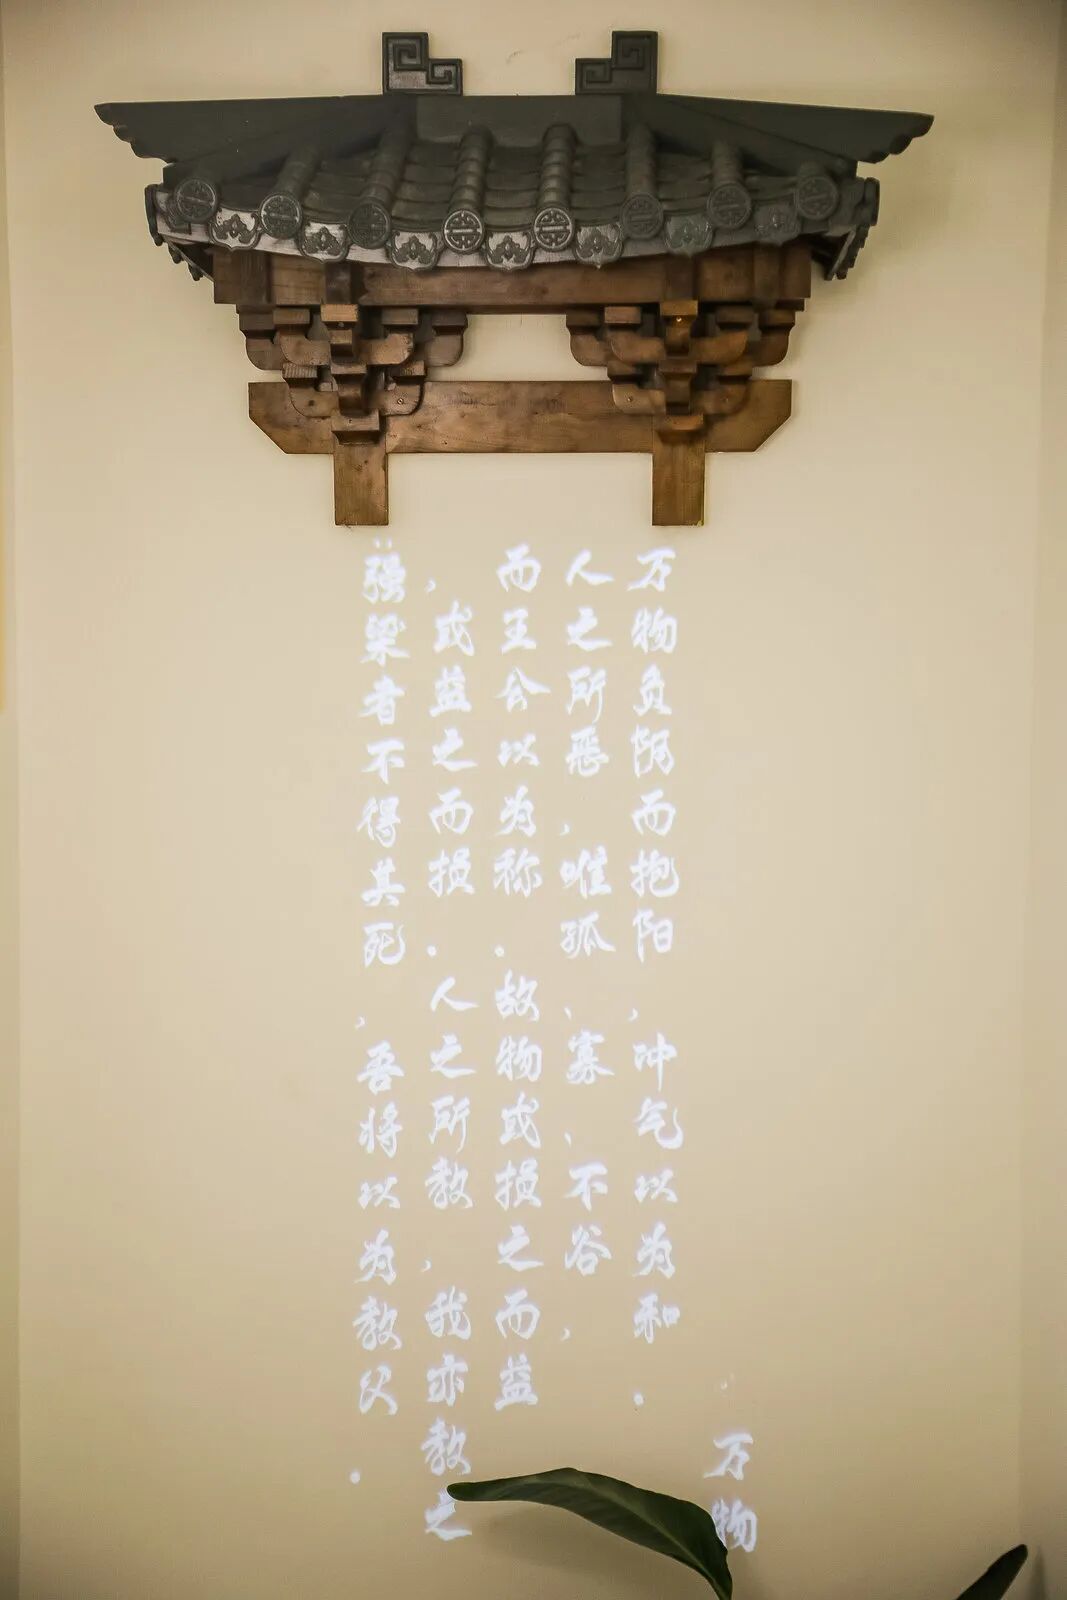 万物
万物负阴而抱阳，冲气以为和。
人之所恶，唯孤、寡、不谷，
而王公以为称。故物或损之而益
，或益之而损。人之所教，我亦教之
强梁者不得其死，吾将以为教父。